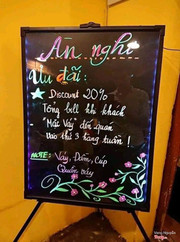 An nghi
Ưu đãi:
Discount 20%
Tổng bill khi khách
"Mặc Váy" đến quán
Vào thứ 3 hàng tuần!
NOTE: Váy, Đầm, Cúp
Quần váy